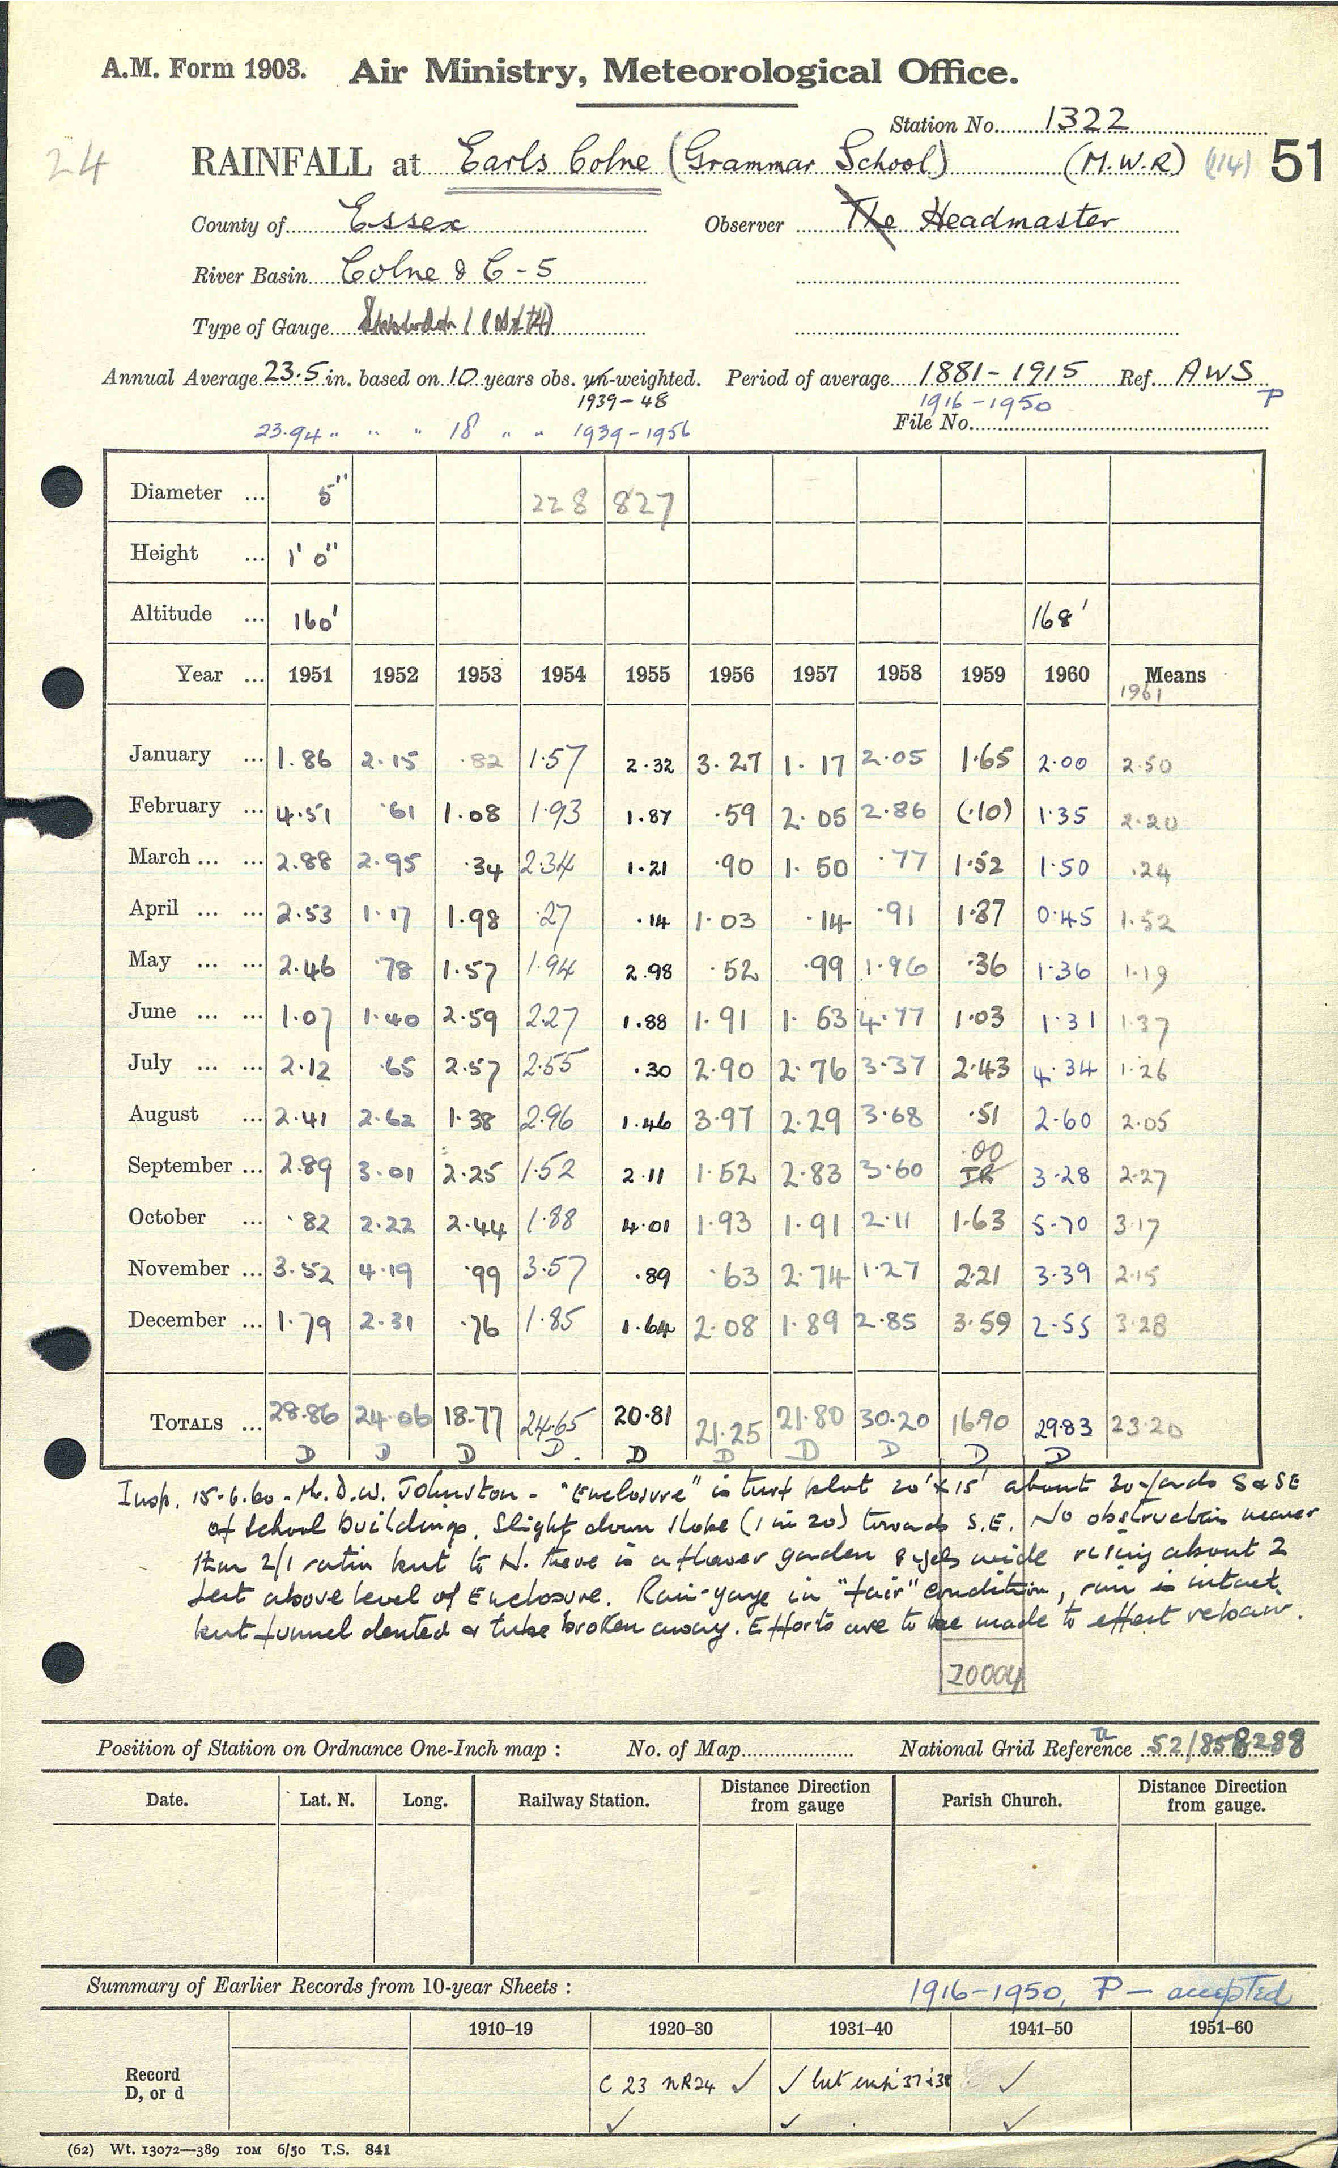 A.M. Form 1903. Air Ministry, Meteorological Office.
Station No. 1322
24 RAINFALL at Earls Colne (Grammar School) (M.W.R) (114) 51
County of Essex Observer The Headmaster
River Basin Colne & C - 5
Type of Gauge
Annual Average 23.5 in. based on 10 years obs. un-weighted. Period of average 1881-1915 Ref. AWS
1939-48 1916-1950 P
23.94 " " " 18 " " 1939-1956 File No.
Diameter ... 5" 228 827
Height ... 1' 0"
Altitude ... 160' 168'
Year ... 1951 1952 1953 1954 1955 1956 1957 1958 1959 1960 Means
1961
January ... 1.86 2.15 .82 1.57 2.32 3.27 1.17 2.05 1.65 2.00 2.50
February ... 4.51 .61 1.08 1.93 1.87 .59 2.05 2.86 (.10) 1.35 2.20
March ... ... 2.88 2.95 .34 2.34 1.21 .90 1.50 .77 1.52 1.50 .24
April ... ... 2.53 1.17 1.98 .27 .14 1.03 .14 .91 1.87 0.45 1.52
May ... ... 2.46 .78 1.57 1.94 2.98 .52 .99 1.96 .36 1.36 1.19
June ... ... 1.07 1.40 2.59 2.27 1.88 1.91 1.63 4.77 1.03 1.31 1.37
July ... ... 2.12 .65 2.57 2.55 .30 2.90 2.76 3.37 2.43 4.34 1.26
August ... 2.41 2.62 1.38 2.96 1.46 3.97 2.29 3.68 .51 2.60 2.05
.00
September ... 2.89 3.01 2.25 1.52 2.11 1.52 2.83 3.60 TR 3.28 2.27
October ... .82 2.22 2.44 1.88 4.01 1.93 1.91 2.11 1.63 5.70 3.17
November ... 3.52 4.19 .99 3.57 .89 .63 2.74 1.27 2.21 3.39 2.15
December ... 1.79 2.31 .76 1.85 1.64 2.08 1.89 2.85 3.59 2.55 3.28
TOTALS ... 28.86 24.06 18.77 24.65 20.81 21.25 21.80 30.20 16.90 29.83 23.20
D D D D. D D D D D D
Insp. 15.6.60 - Mr. D.W. Johnston - "Enclosure" is turf plot 20' x 15' about 20 yards S & SE
of school buildings. Slight down slope (1 in 20) towards S.E. No obstruction nearer
than 2/1 ratio but to N. there is a flower garden 8 yds wide rising about 2
feet above level of Enclosure. Rain-gauge in "fair" condition, rim is intact,
but funnel dented & tube broken away. Efforts are to be made to effect repair.
20004
Position of Station on Ordnance One-Inch map : No. of Map National Grid Reference 52/858288
TL
Date. Lat. N. Long. Railway Station. Distance Direction from gauge Parish Church. Distance Direction from gauge.
Summary of Earlier Records from 10-year Sheets : 1916-1950, P - accepted
1910–19 1920–30 1931–40 1941–50 1951–60
Record
D, or d C 23 NR24 ✓ ✓ but 37 & 38 ✓
✓ ✓ ✓
(62) Wt. 13072—389 10M 6/50 T.S. 841